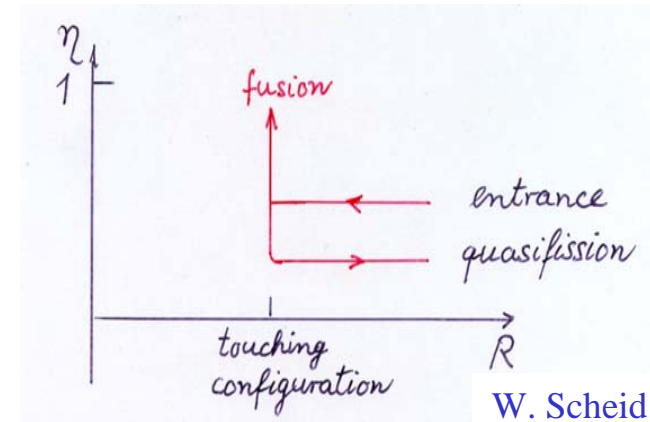 η
1
fusion
entrance
quasifission
touching
configuration
R
W. Scheid